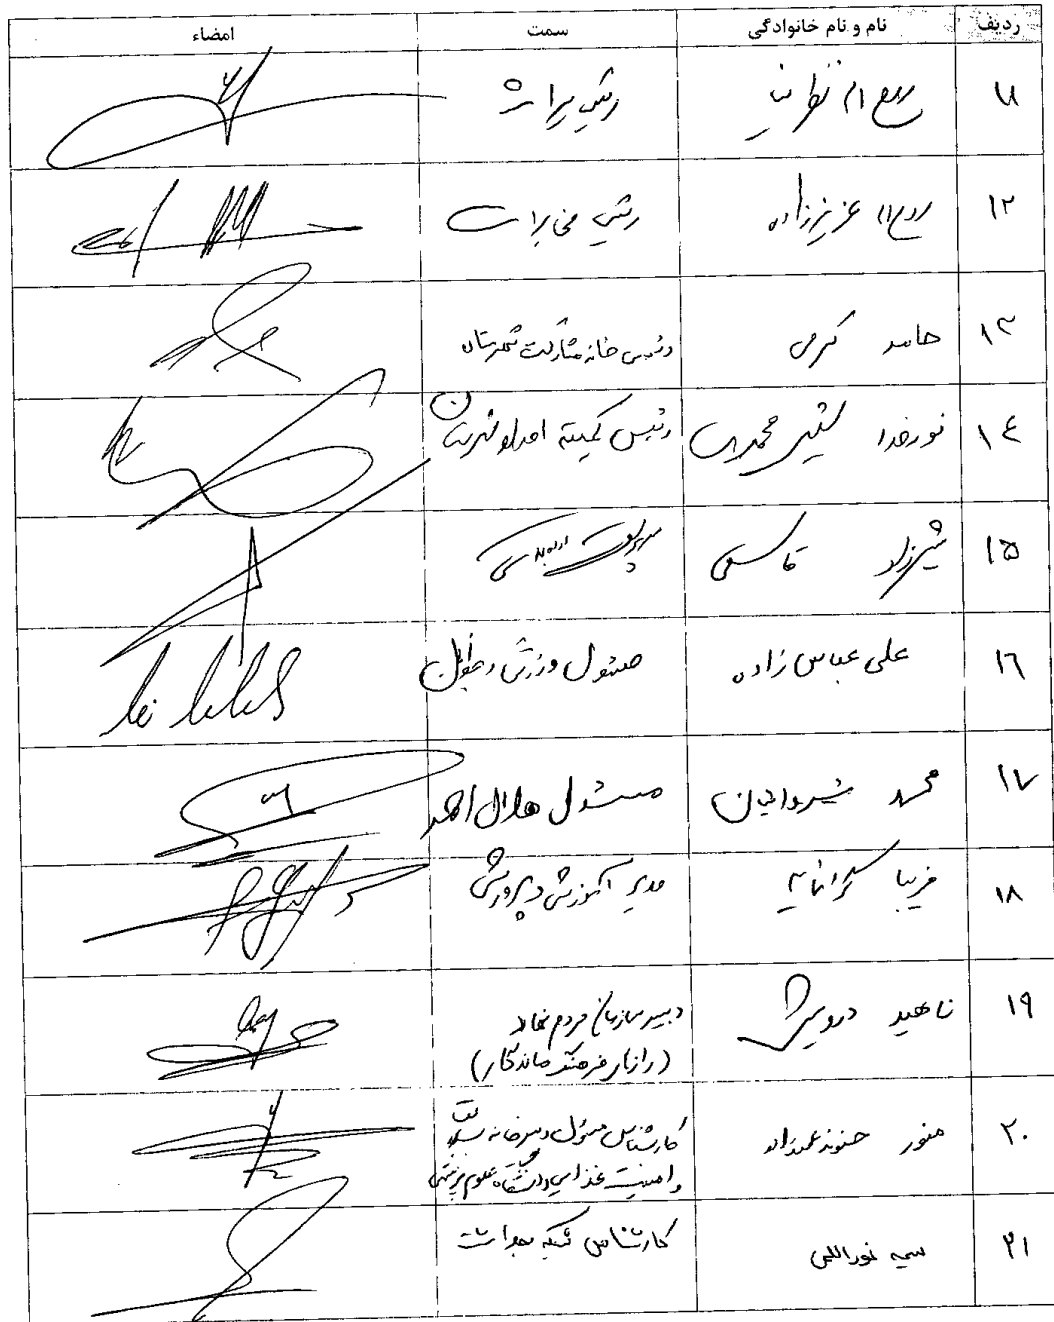 ردیف نام و نام خانوادگی سمت امضاء
۱۱ رئیس
۱۲ عزیززاده رئیس مخابرات
۱۳ حامد کرمی رئیس خانه مشارکت شهرستان
۱۴ نورخدا شیرمحمدی رئیس کمیته امداد شهرستان
۱۵ شیرزاد قاسمی سرپرست
۱۶ علی عباس زاده مسئول ورزش و جوانان
۱۷ محمد شیروانیان مسئول هلال احمر
۱۸ فریبا مدیر آموزش و پرورش
۱۹ ناهید درویشی دبیر سازمان مردم نهاد
(رازیار فرهنگ ماندگار)
۲۰ منور کارشناس مسئول دبیرخانه سلامت
و امنیت غذایی دانشگاه علوم پزشکی
۲۱ سمیه نوراللهی کارشناس شبکه بهداشت